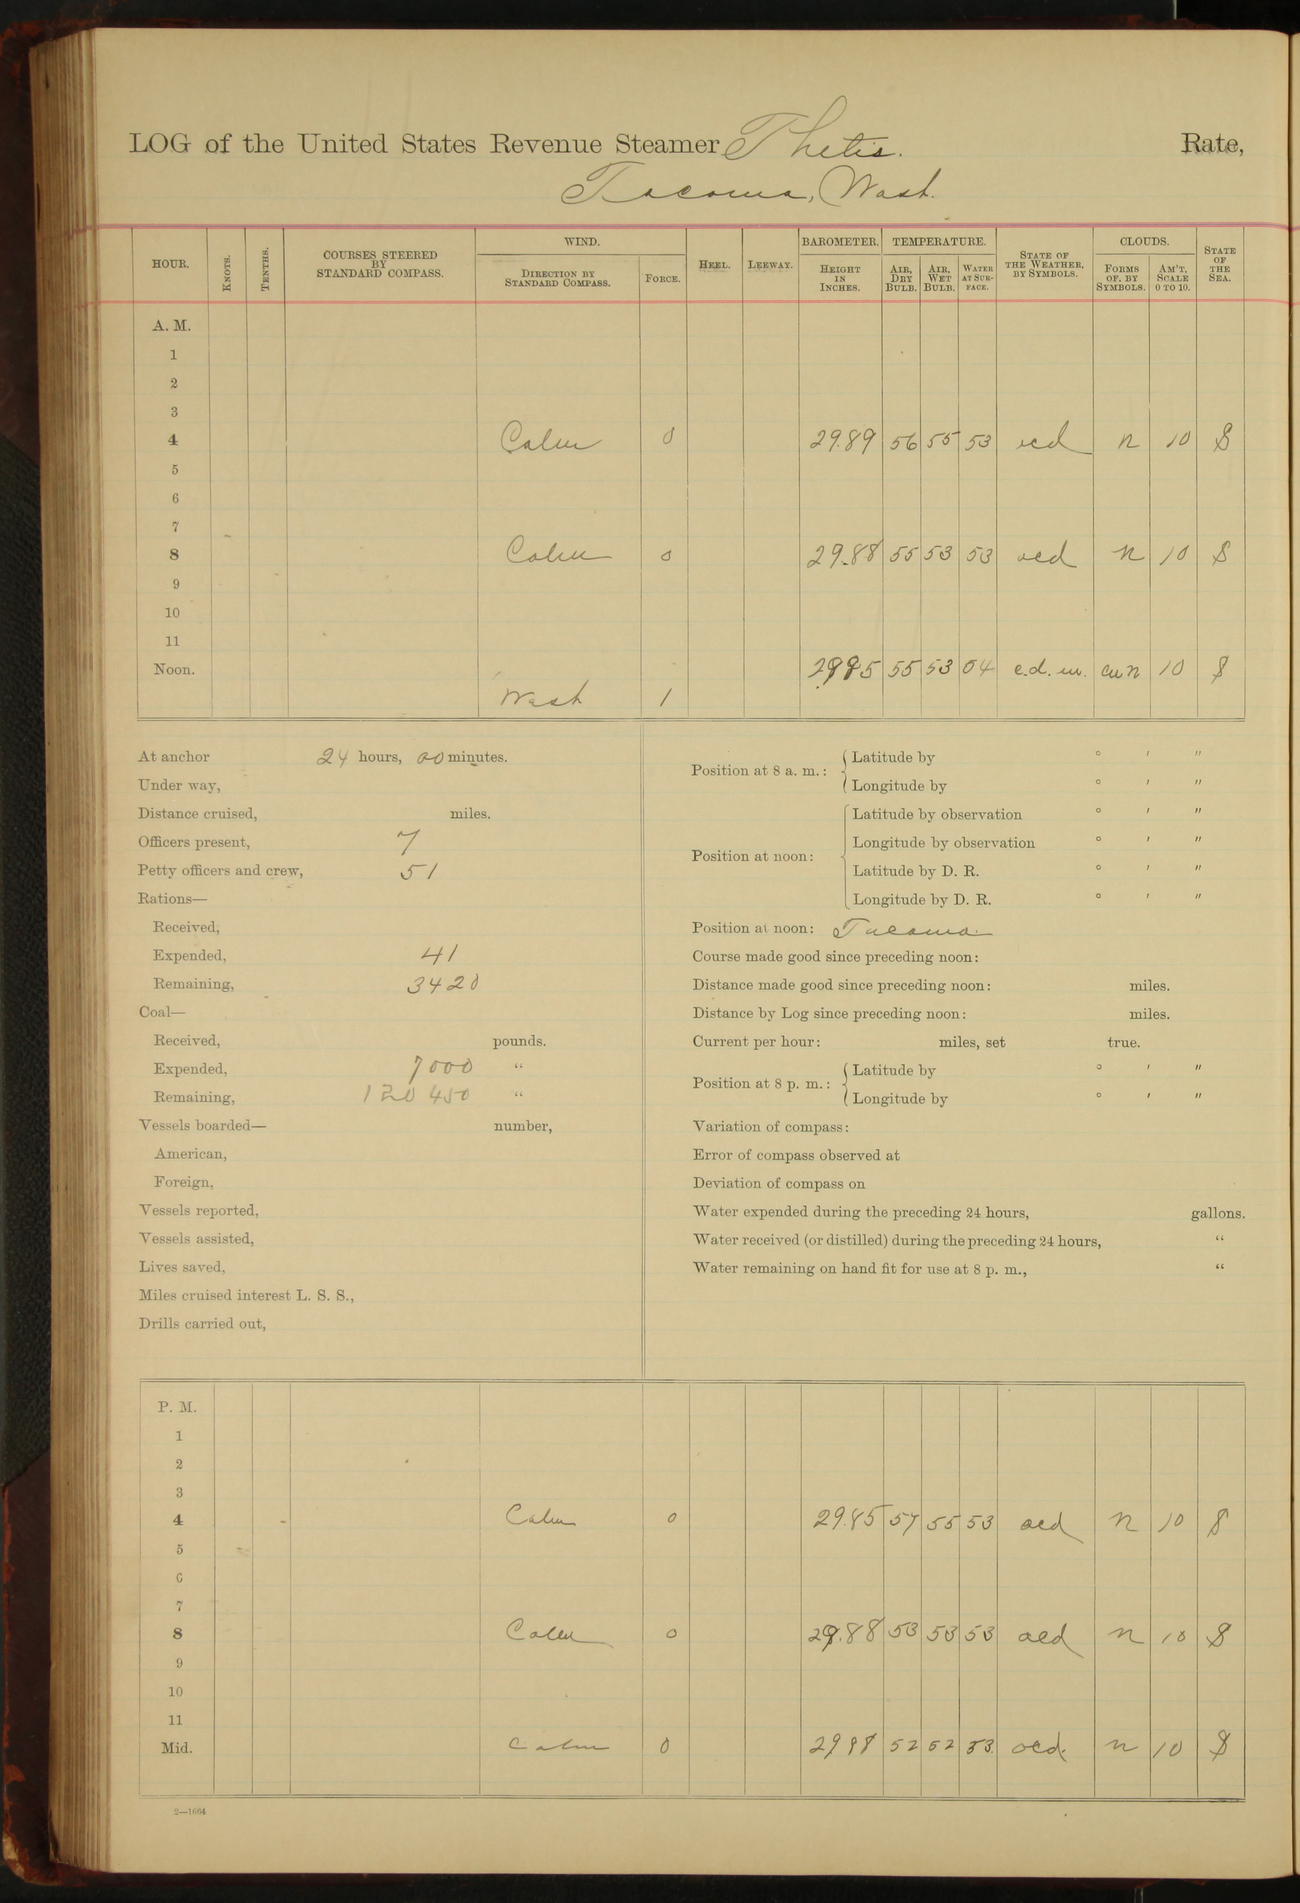 LOG of the United States Revenue Steamer Thetis. Rate,
Tacoma, Wash.
HOUR. KNOTS. TENTHS. COURSES STEERED BY STANDARD COMPASS. WIND. DIRECTION BY STANDARD COMPASS. FORCE. HEEL. LEEWAY. BAROMETER. HEIGHT IN INCHES. TEMPERATURE. AIR, DRY BULB. AIR, WET BULB. WATER AT SURFACE. STATE OF THE WEATHER, BY SYMBOLS. CLOUDS. FORMS OF, BY SYMBOLS. AM'T, SCALE 0 TO 10. STATE OF THE SEA.
A. M.
1
2
3
4 Calm 0 29.89 56 55 53 ocd n 10 S
5
6
7
8 Calm 0 29.88 55 53 53 ocd n 10 S
9
10
11
Noon. 29 85 55 53 54 c.d.m. cu n 10 S
West 1
At anchor 24 hours, 00 minutes.
Under way,
Distance cruised, miles.
Officers present, 7
Petty officers and crew, 51
Rations—
Received,
Expended, 41
Remaining, 3420
Coal—
Received, pounds.
Expended, 7000 "
Remaining, 120 450 "
Vessels boarded— number,
American,
Foreign,
Vessels reported,
Vessels assisted,
Lives saved,
Miles cruised interest L. S. S.,
Drills carried out,
Position at 8 a. m.: Latitude by ° ′ ″
Longitude by ° ′ ″
Position at noon: Latitude by observation ° ′ ″
Longitude by observation ° ′ ″
Latitude by D. R. ° ′ ″
Longitude by D. R. ° ′ ″
Position at noon: Tacoma
Course made good since preceding noon:
Distance made good since preceding noon: miles.
Distance by Log since preceding noon: miles.
Current per hour: miles, set true.
Position at 8 p. m.: Latitude by ° ′ ″
Longitude by ° ′ ″
Variation of compass:
Error of compass observed at
Deviation of compass on
Water expended during the preceding 24 hours, gallons.
Water received (or distilled) during the preceding 24 hours, "
Water remaining on hand fit for use at 8 p. m., "
P. M.
1
2
3
4 Calm 0 29.85 57 55 53 ocd n 10 S
5
6
7
8 Calm 0 29.88 53 53 53 ocd n 10 S
9
10
11
Mid. Calm 0 29 88 52 52 53 ocd. n 10 S
2—1664